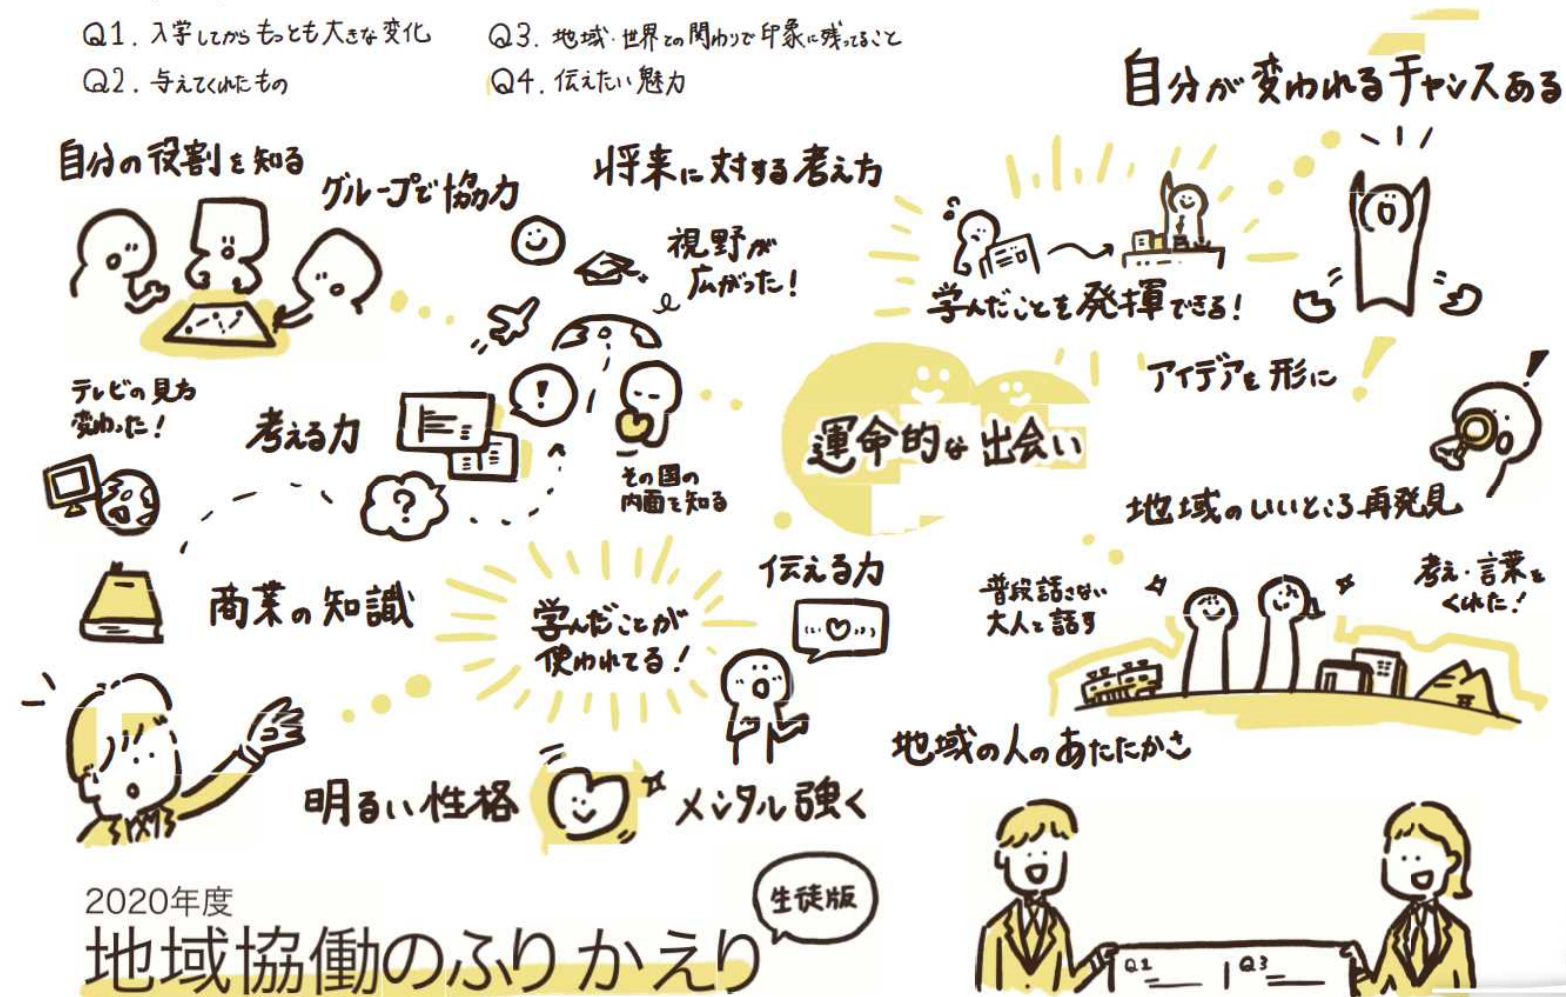 Q1. 入学してからもっとも大きな変化
Q2. 与えてくれたもの
Q3. 地域・世界との関わりで印象に残ってること
Q4. 伝えたい魅力
自分が変われるチャンスある
自分の役割を知る
グループで協力
将来に対する考え方
視野が
広がった!
学んだことを発揮できる!
アイデアを形に
テレビの見方
変わった!
考える力
!
?
その国の
内面を知る
運命的な出会い
地域のいいところ再発見
商業の知識
学んだことが
使われてる!
伝える力
普段話さない
大人と話す
考え・言葉を
くれた!
地域の人のあたたかさ
明るい性格
メンタル強く
2020年度
地域協働のふりかえり
生徒版
Q1
Q3